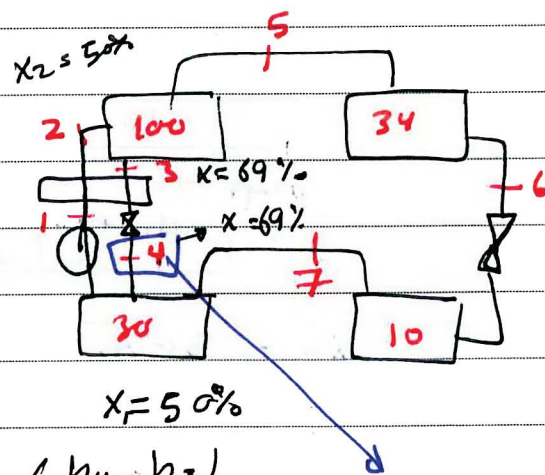 5
x2 = 50%
100
34
2
3
x=69%
6
1
x=69%
4
7
30
10
x1=50%